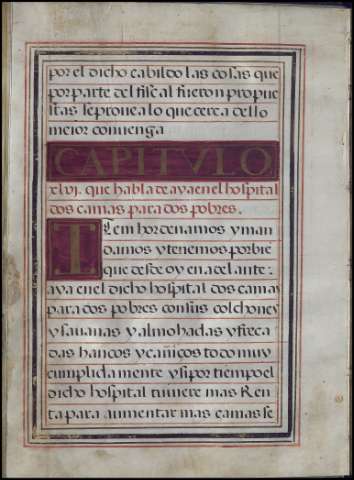 por el dicho cabildo las cosas que
por parte del fisc al fueron propue
stas seprouea lo que cerca dello
meior conuenga
CAPITVLO
xlvj. que habla de aya en el hospital
dos camas para dos pobres.
ITem hordenamos y man
damos y tenemos por bie
que desde oy en a del ante
aya en el dicho hospital dos camas
para dos pobres con sus colchones
y sauanas y almohadas y freca
das bancos y cañicos todo muy
cumplida mente y si por tiempo el
dicho hospital tuuiere mas Ren
ta para aumentar mas camas se